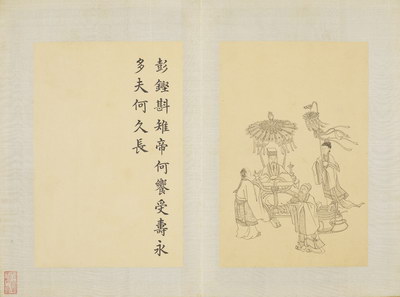 彭鏗斟雉帝何饗受壽永
多夫何久長